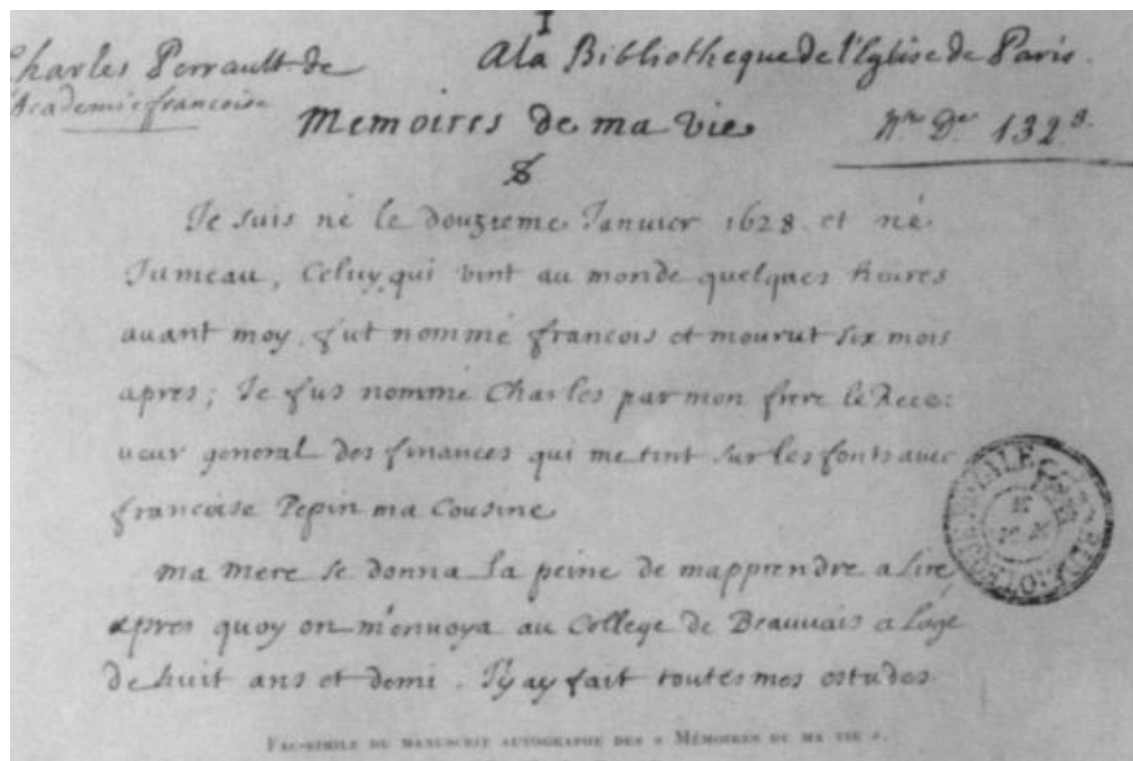 I
Charles Perrault de
l'Academie françoise
A la Bibliotheque de l'Eglise de Paris.
Memoires de ma vie
Je suis né le douzieme Januier 1628. et né
Jumeau, Celuy qui vint au monde quelques heures
auant moy, fut nommé francois et mourut six mois
apres; Je fus nommé Charles par mon frere le Rece:
ueur general des finances qui me tint sur les fonts auec
francoise Pepin ma Cousine
ma mere se donna la peine de mapprendre a lire
apres quoy on m'enuoya au College de Beauuais a lage
de huit ans et demi. J'y ay fait toutes mes estudes
FAC-SIMILE DU MANUSCRIT AUTOGRAPHE DES « MÉMOIRES DE MA VIE ».